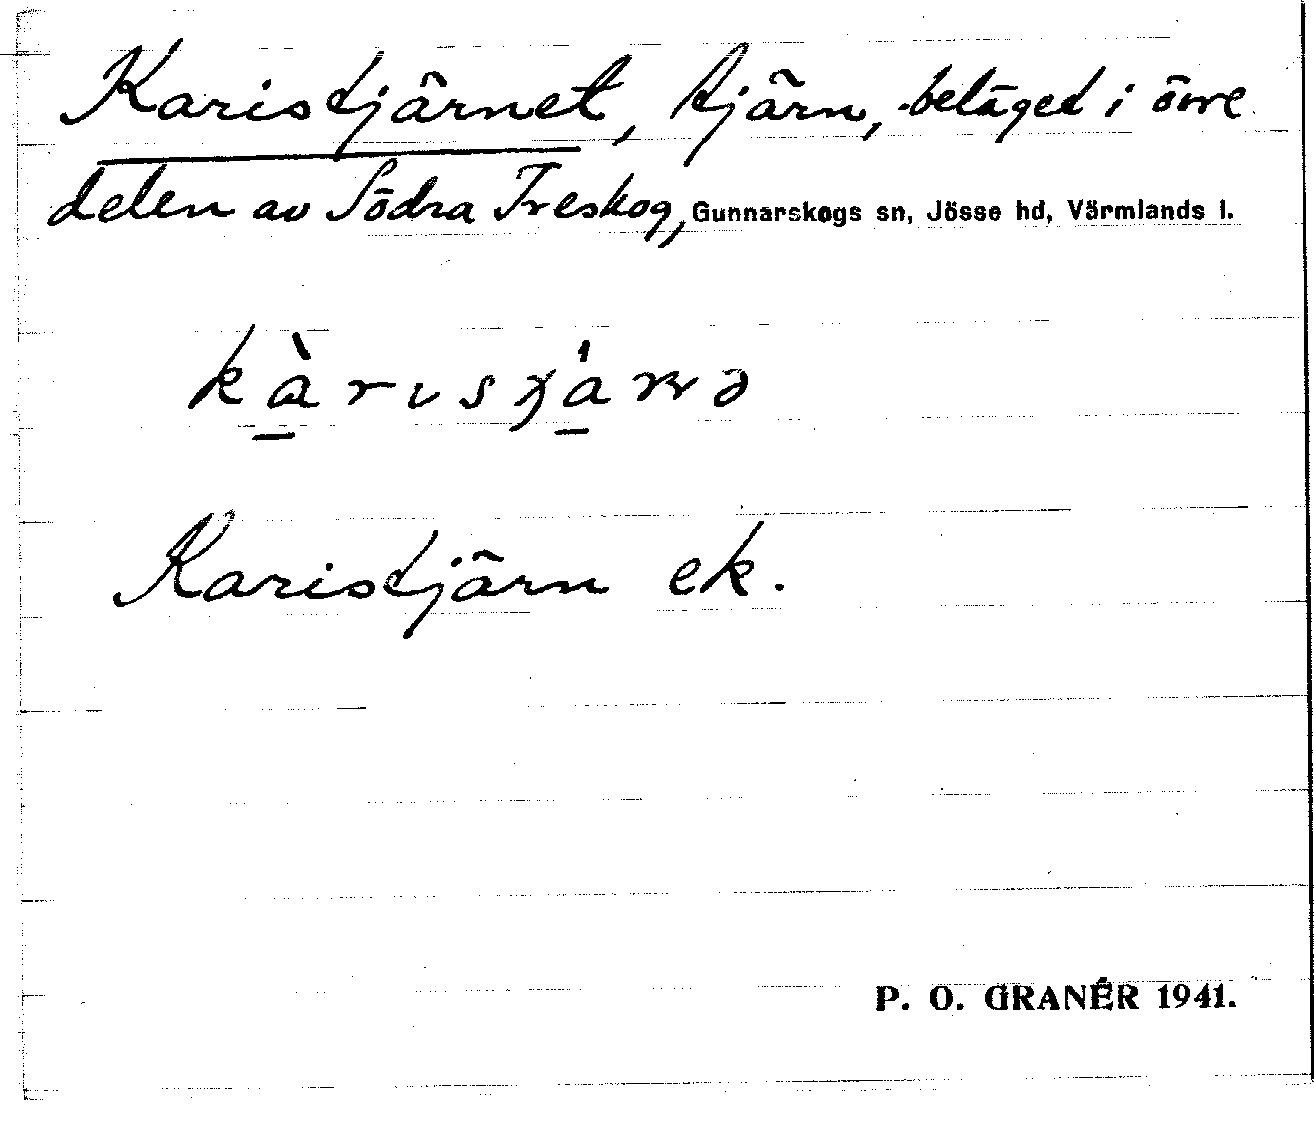 Karistjärnet, tjärn, beläget i övre
delen av Södra Treskog, Gunnarskogs sn, Jösse hd, Värmlands l.
Karistjärn ek.
P. O. GRANÉR 1941.